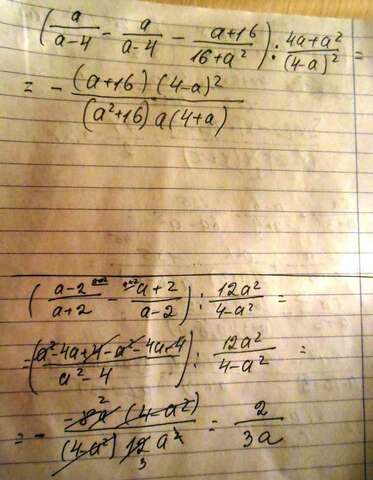 (a/(a-4) - a/(a-4) - (a+16)/(16+a²)) : (4a+a²)/(4-a)² =
= - ((a+16)(4-a)²)/((a²+16)a(4+a))
((a-2)/(a+2) - (a+2)/(a-2)) : 12a²/(4-a²) =
= ((a²-4a+4-a²-4a-4)/(a²-4)) : 12a²/(4-a²) =
= - (-8a (4-a²))/((4-a²) 12a²) = 2/(3a)
2
3